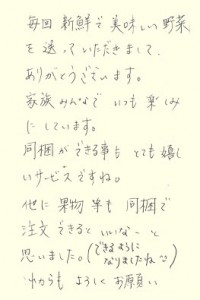 毎回 新鮮で美味しい野菜
を送っていただきまして、
ありがとうございます。
家族みんなで いつも楽しみ
に しています。
同梱ができる事も とても嬉し
いサービスですね。
他に 果物等も 同梱で
注文 できると いいなーと
思いました。(できるように
なりましたね〜)
これからも よろしくお願い